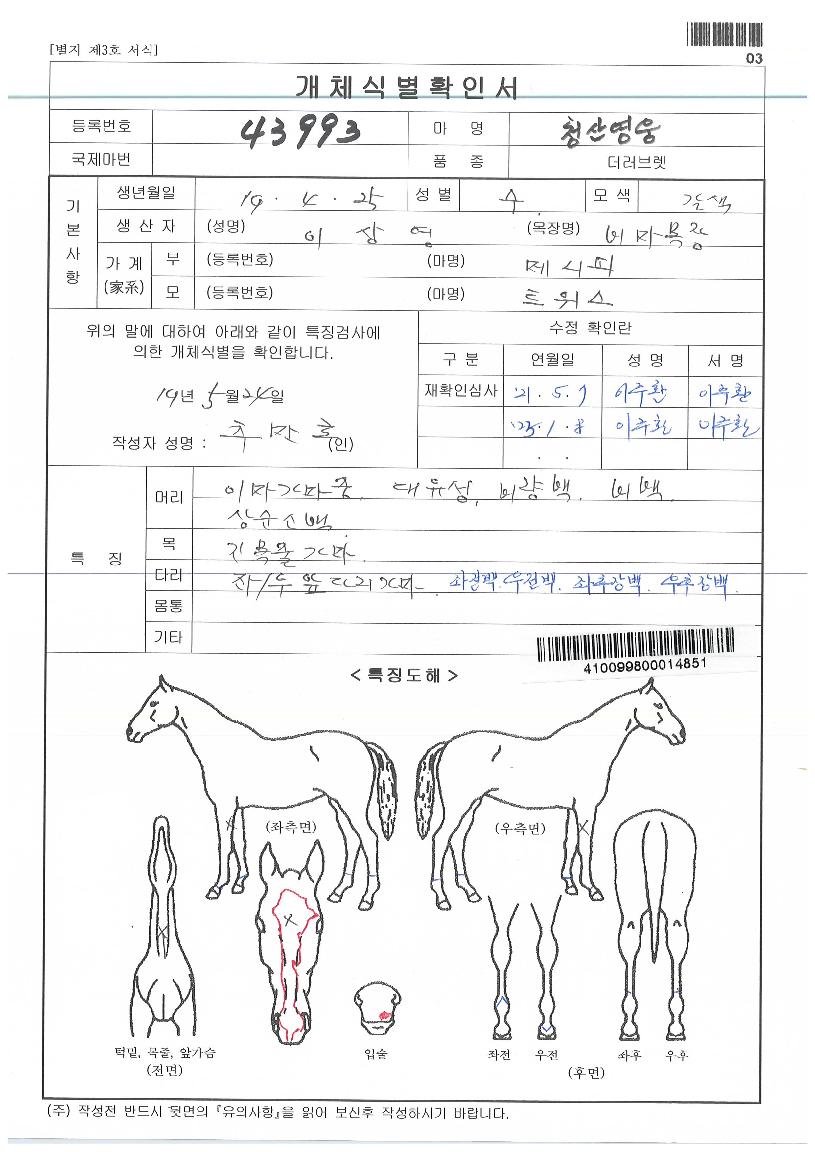 [별지 제3호 서식]
03
개체식별확인서
등록번호 43993 마 명 청산영웅
국제마번 품 종 더러브렛
기본사항
생년월일 19 . 4 . 25 성 별 수 모 색 갈색
생 산 자 (성명) 이 상 영 (목장명) 비자목장
가 계 (家系) 부 (등록번호) (마명) 메니피
모 (등록번호) (마명) 트위스
위의 말에 대하여 아래와 같이 특징검사에
의한 개체식별을 확인합니다.
19년 5월 24일
작성자 성명 : 추 만 호 (인)
수정 확인란
구 분 연월일 성 명 서 명
재확인심사 '21 . 5 . 7 이주환 이주환
'23 . 1 . 8 이주환 이주환
. .
특 징
머리 이마가마중. 대유성. 비량백. 비백.
상순소백
목
다리 좌/우 앞다리가마 좌전백. 우전백. 좌후장백. 우후장백.
몸통
기타
410099800014851
< 특징도해 >
(좌측면) (우측면)
턱밑, 목줄, 앞가슴
(전면)
입술
좌전 우전 좌후 우후
(후면)
(주) 작성전 반드시 뒷면의 『유의사항』을 읽어 보신후 작성하시기 바랍니다.